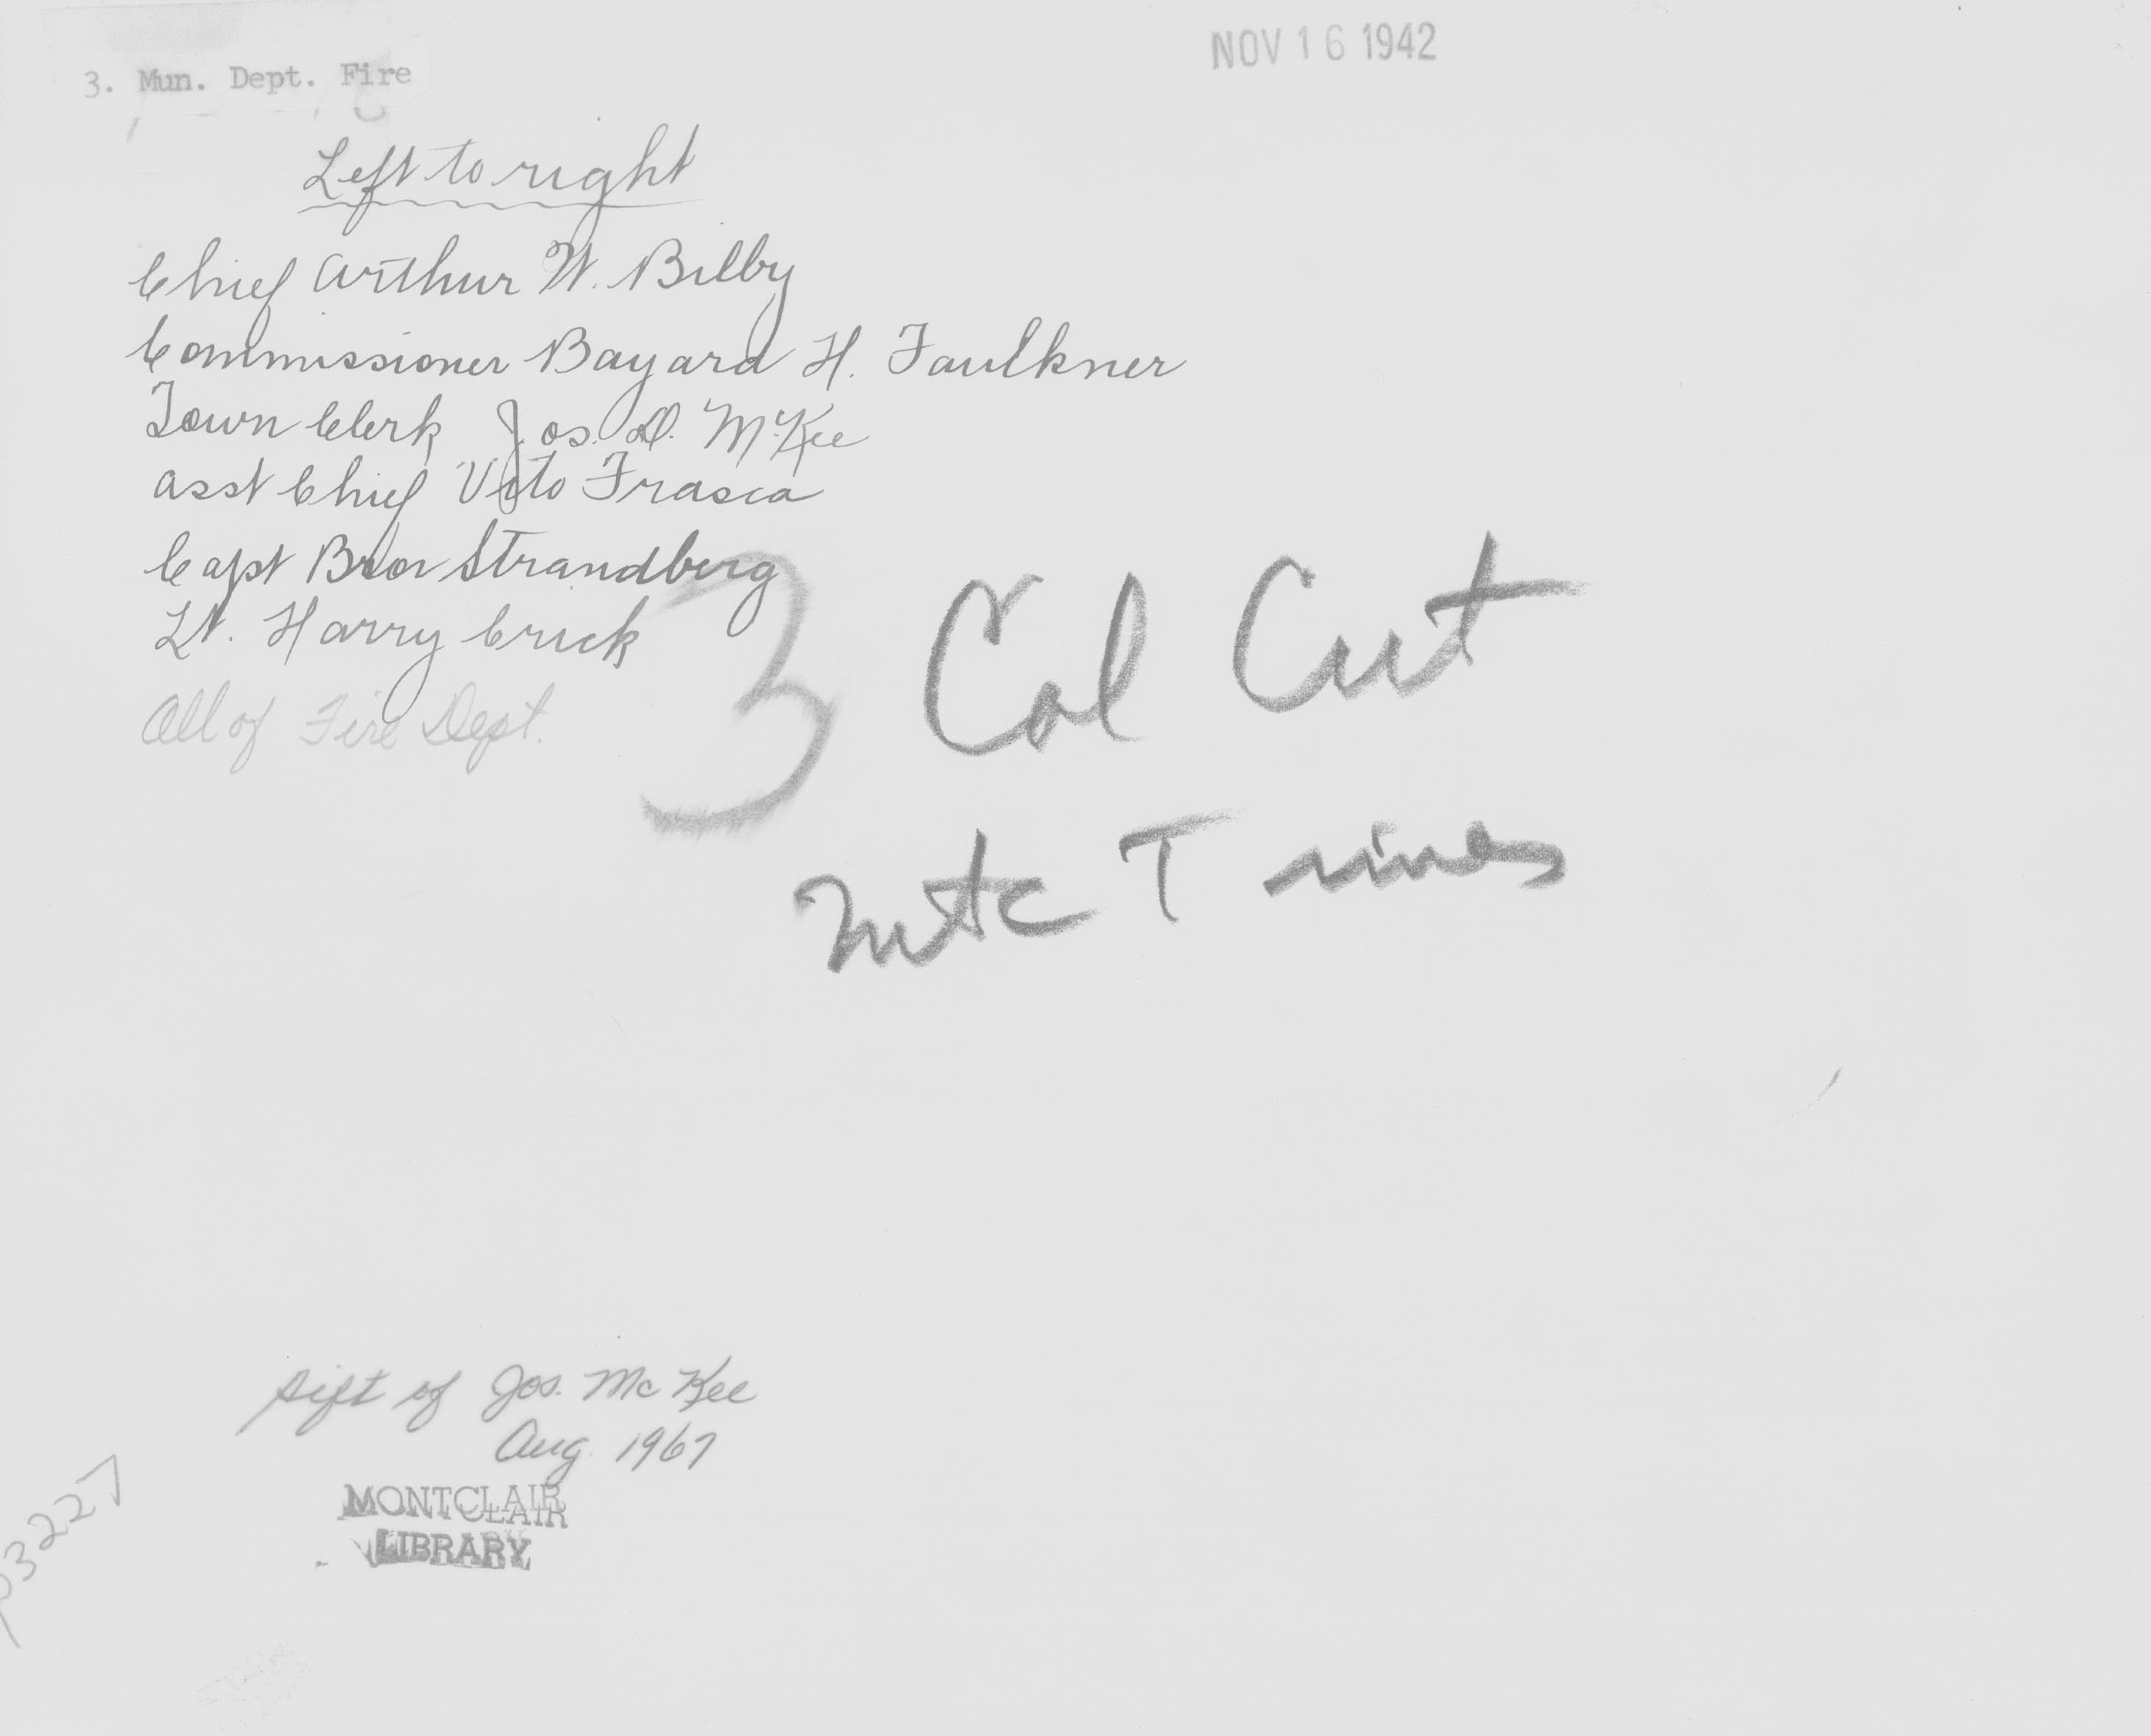 NOV 16 1942
3. Mun. Dept. Fire
Left to right
Chief Arthur W. Bilby
Commissioner Bayard H. Faulkner
Town Clerk Jos. D. McKee
Asst Chief Vito Frasca
Capt Bror Strandberg
Lt. Harry Crick
All of Fire Dept.
3 Col Cut
Mtc Times
Gift of Jos. Mc Kee
Aug. 1967
MONTCLAIR
LIBRARY
p3227